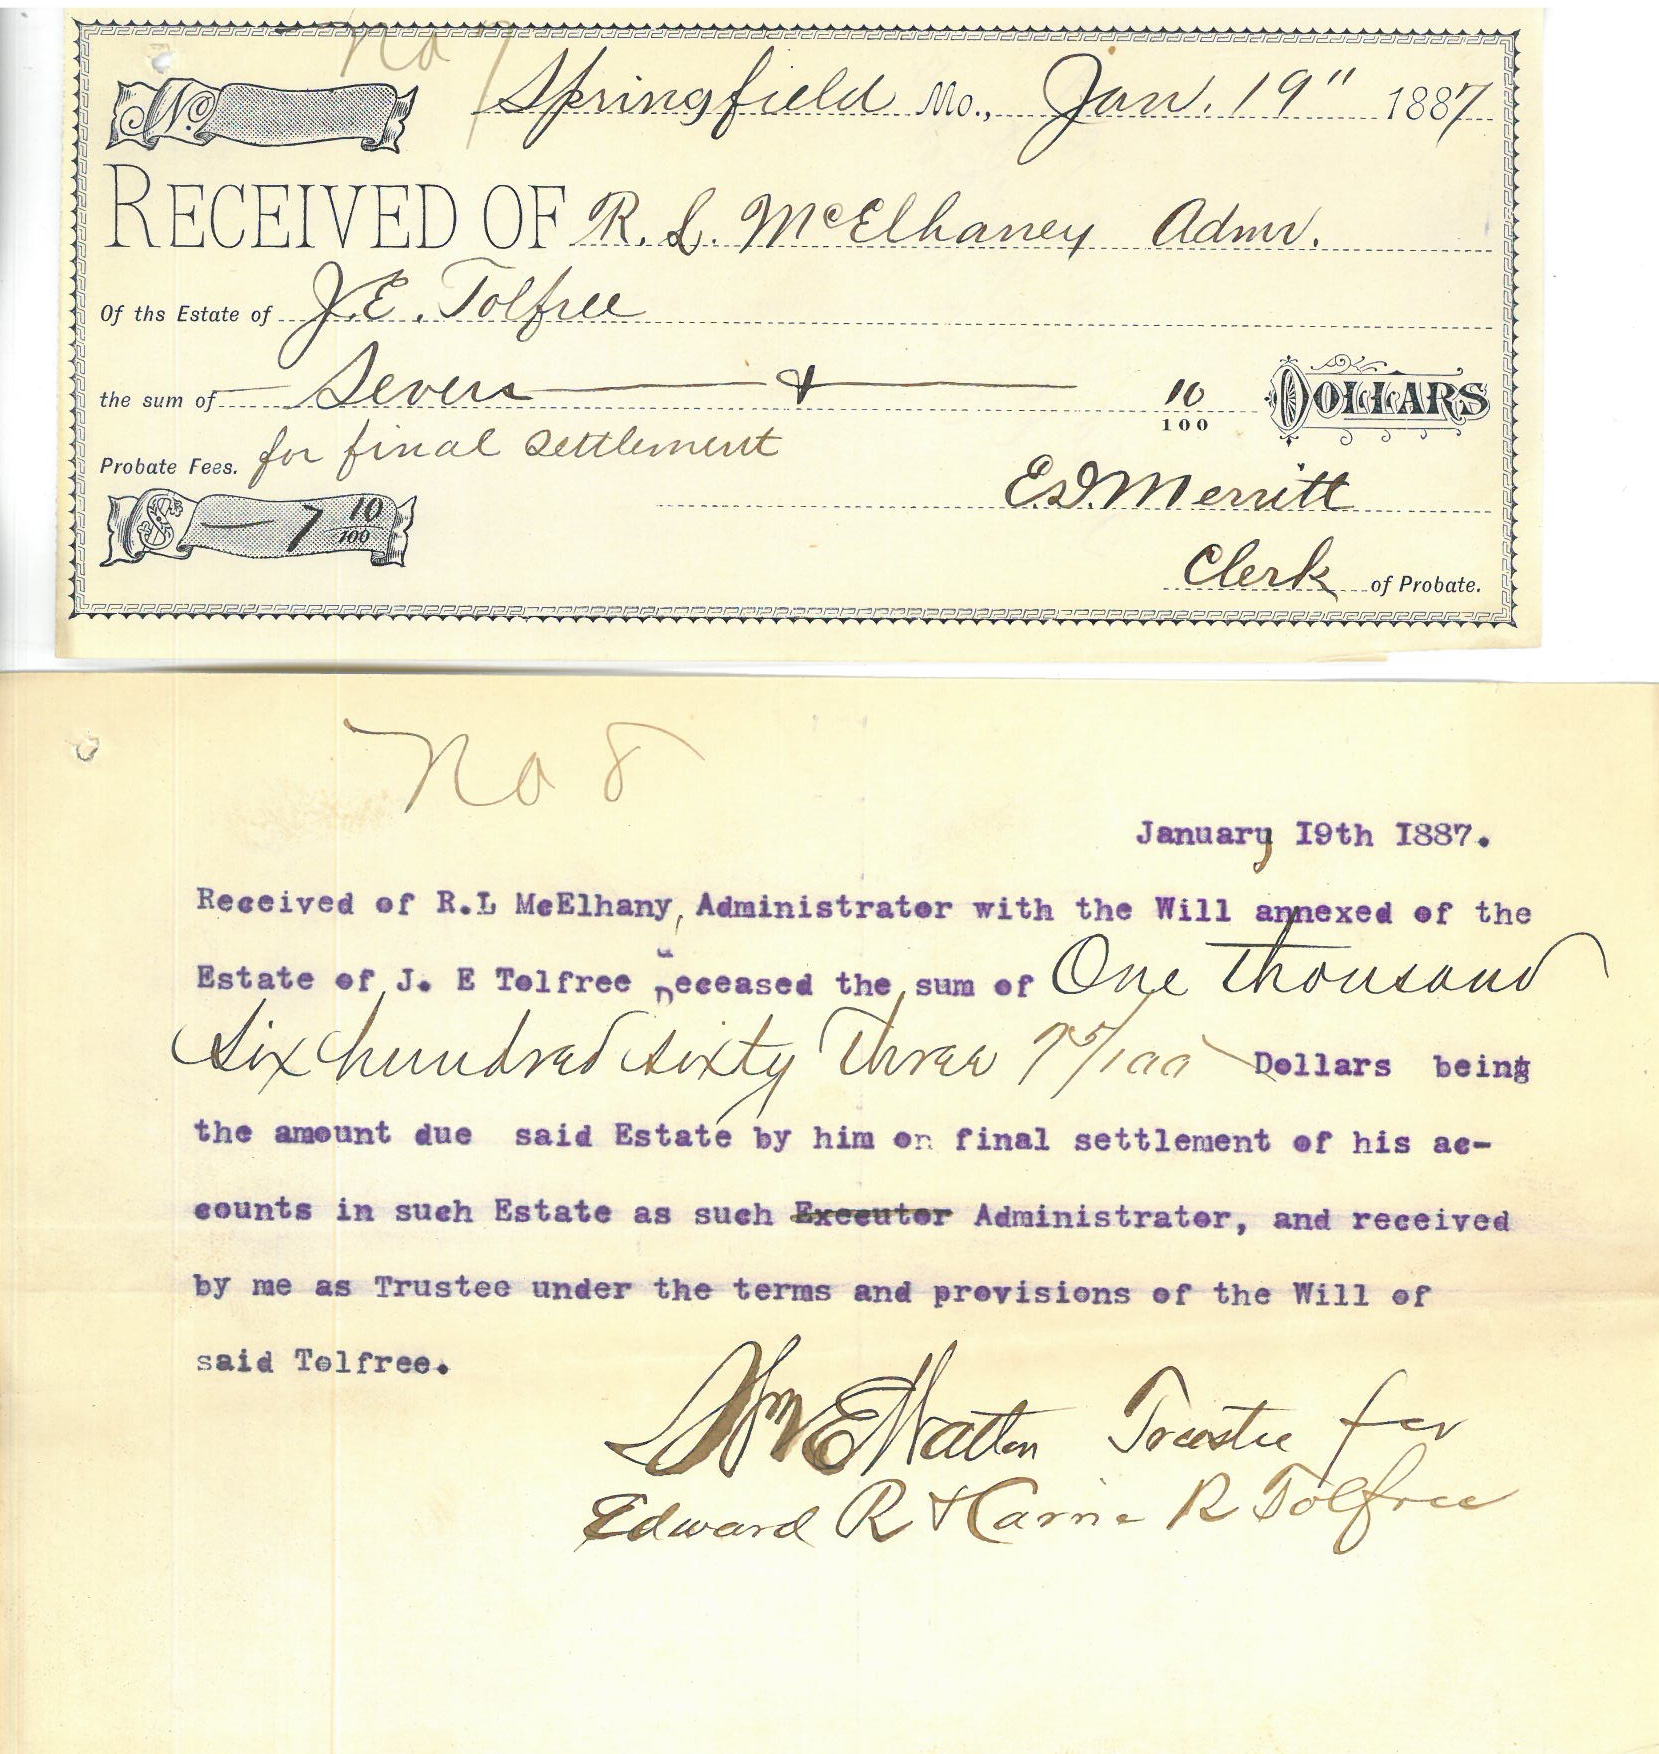 No 7
No. Springfield Mo., Jan. 19" 1887
RECEIVED OF R. L. McElhaney Admr.
Of ths Estate of J. E. Tolfree
the sum of Seven & 10/100 DOLLARS
Probate Fees. for final settlement
E. D. Merritt
$ 7 10/100
Clerk of Probate.
No 8
January I9th I887.
Received of R.L McElhany, Administrator with the Will annexed of the
Estate of J. E Tolfree Deceased the sum of One thousand
Six hundred sixty three 75/100 Dollars being
the amount due said Estate by him on final settlement of his ac-
counts in such Estate as such Executor Administrator, and received
by me as Trustee under the terms and provisions of the Will of
said Tolfree.
Wm E Hatten Trustee for
Edward R & Carrie R Tolfree